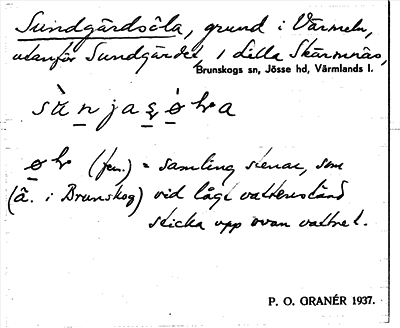 Sundgårdsöla, grund i Värmeln,
utanför Sundgårdet, i Lilla Skärmnäs,
Brunskogs sn, Jösse hd, Värmlands l.
(fem.) = samling stenar, som
(ä. i Brunskog) vid lågt vattenstånd
sticka upp ovan vattnet.
P. O. GRANÉR 1937.